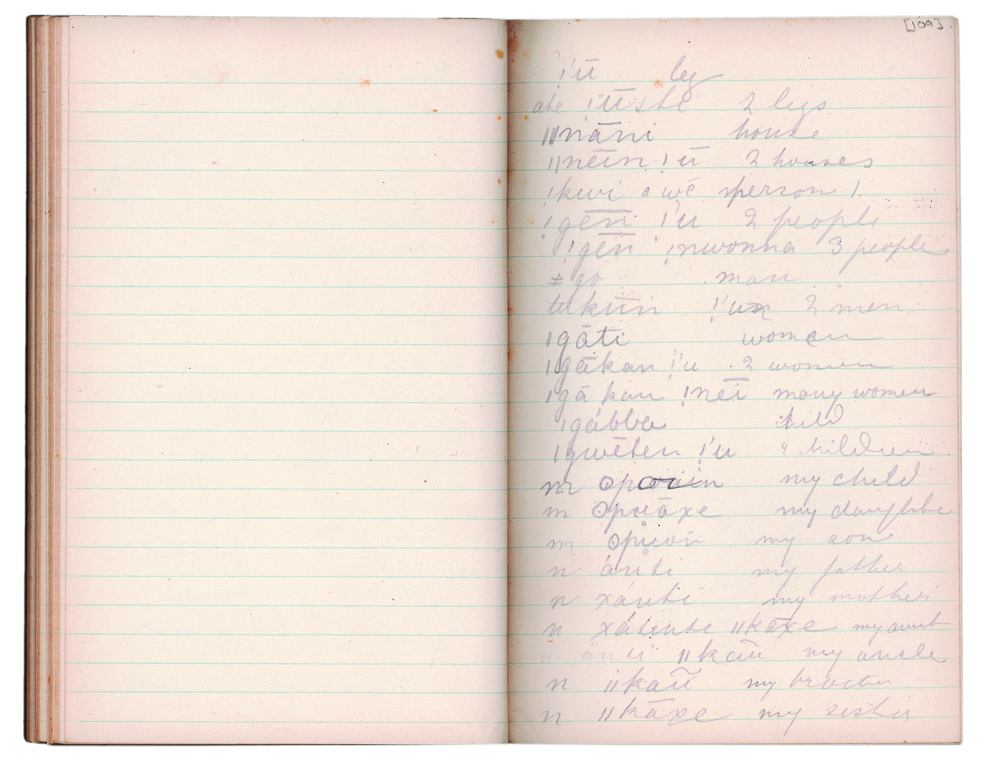 [109]
!'ū leg
!'ū 2 legs
ǁnāni house
ǁnēin !'ū 2 houses
!kwi person 1
!gēn̄ !'u 2 people
!gēn̄ !nwonna 3 people
ǂgo man
tukūn 2 men
ǀgāti woman
ǀgākan !'u 2 women
ǀgākan !nēī many women
ǀgábba child
ǀgwēten !'u 2 children
m my child
m ʘpuāxe my daughter
m ʘpuoṅ my son
n my father
n xáuti my mother
n ǁkāxe my aunt
n ǁkāū my uncle
n ǁkāū my brother
n ǁkāxe my sister